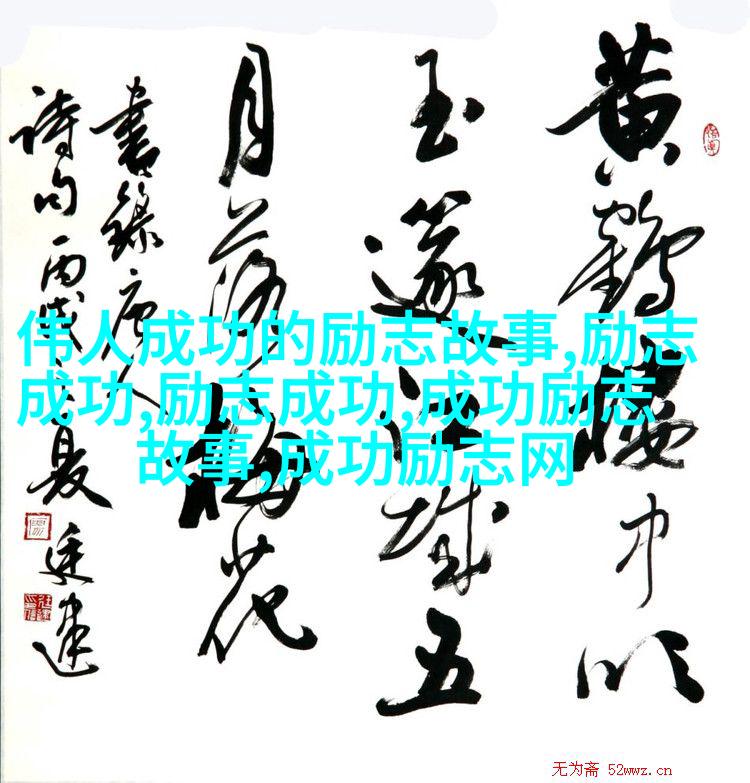 黄鶴樓中吹
玉篴江城五
月落梅花
書錄唐人
詩句丙戌夏廷建
伟人成功的励志故事,励志
成功,励志成功,成功励志
故事,成功励志网
无为斋 52wwz.cn